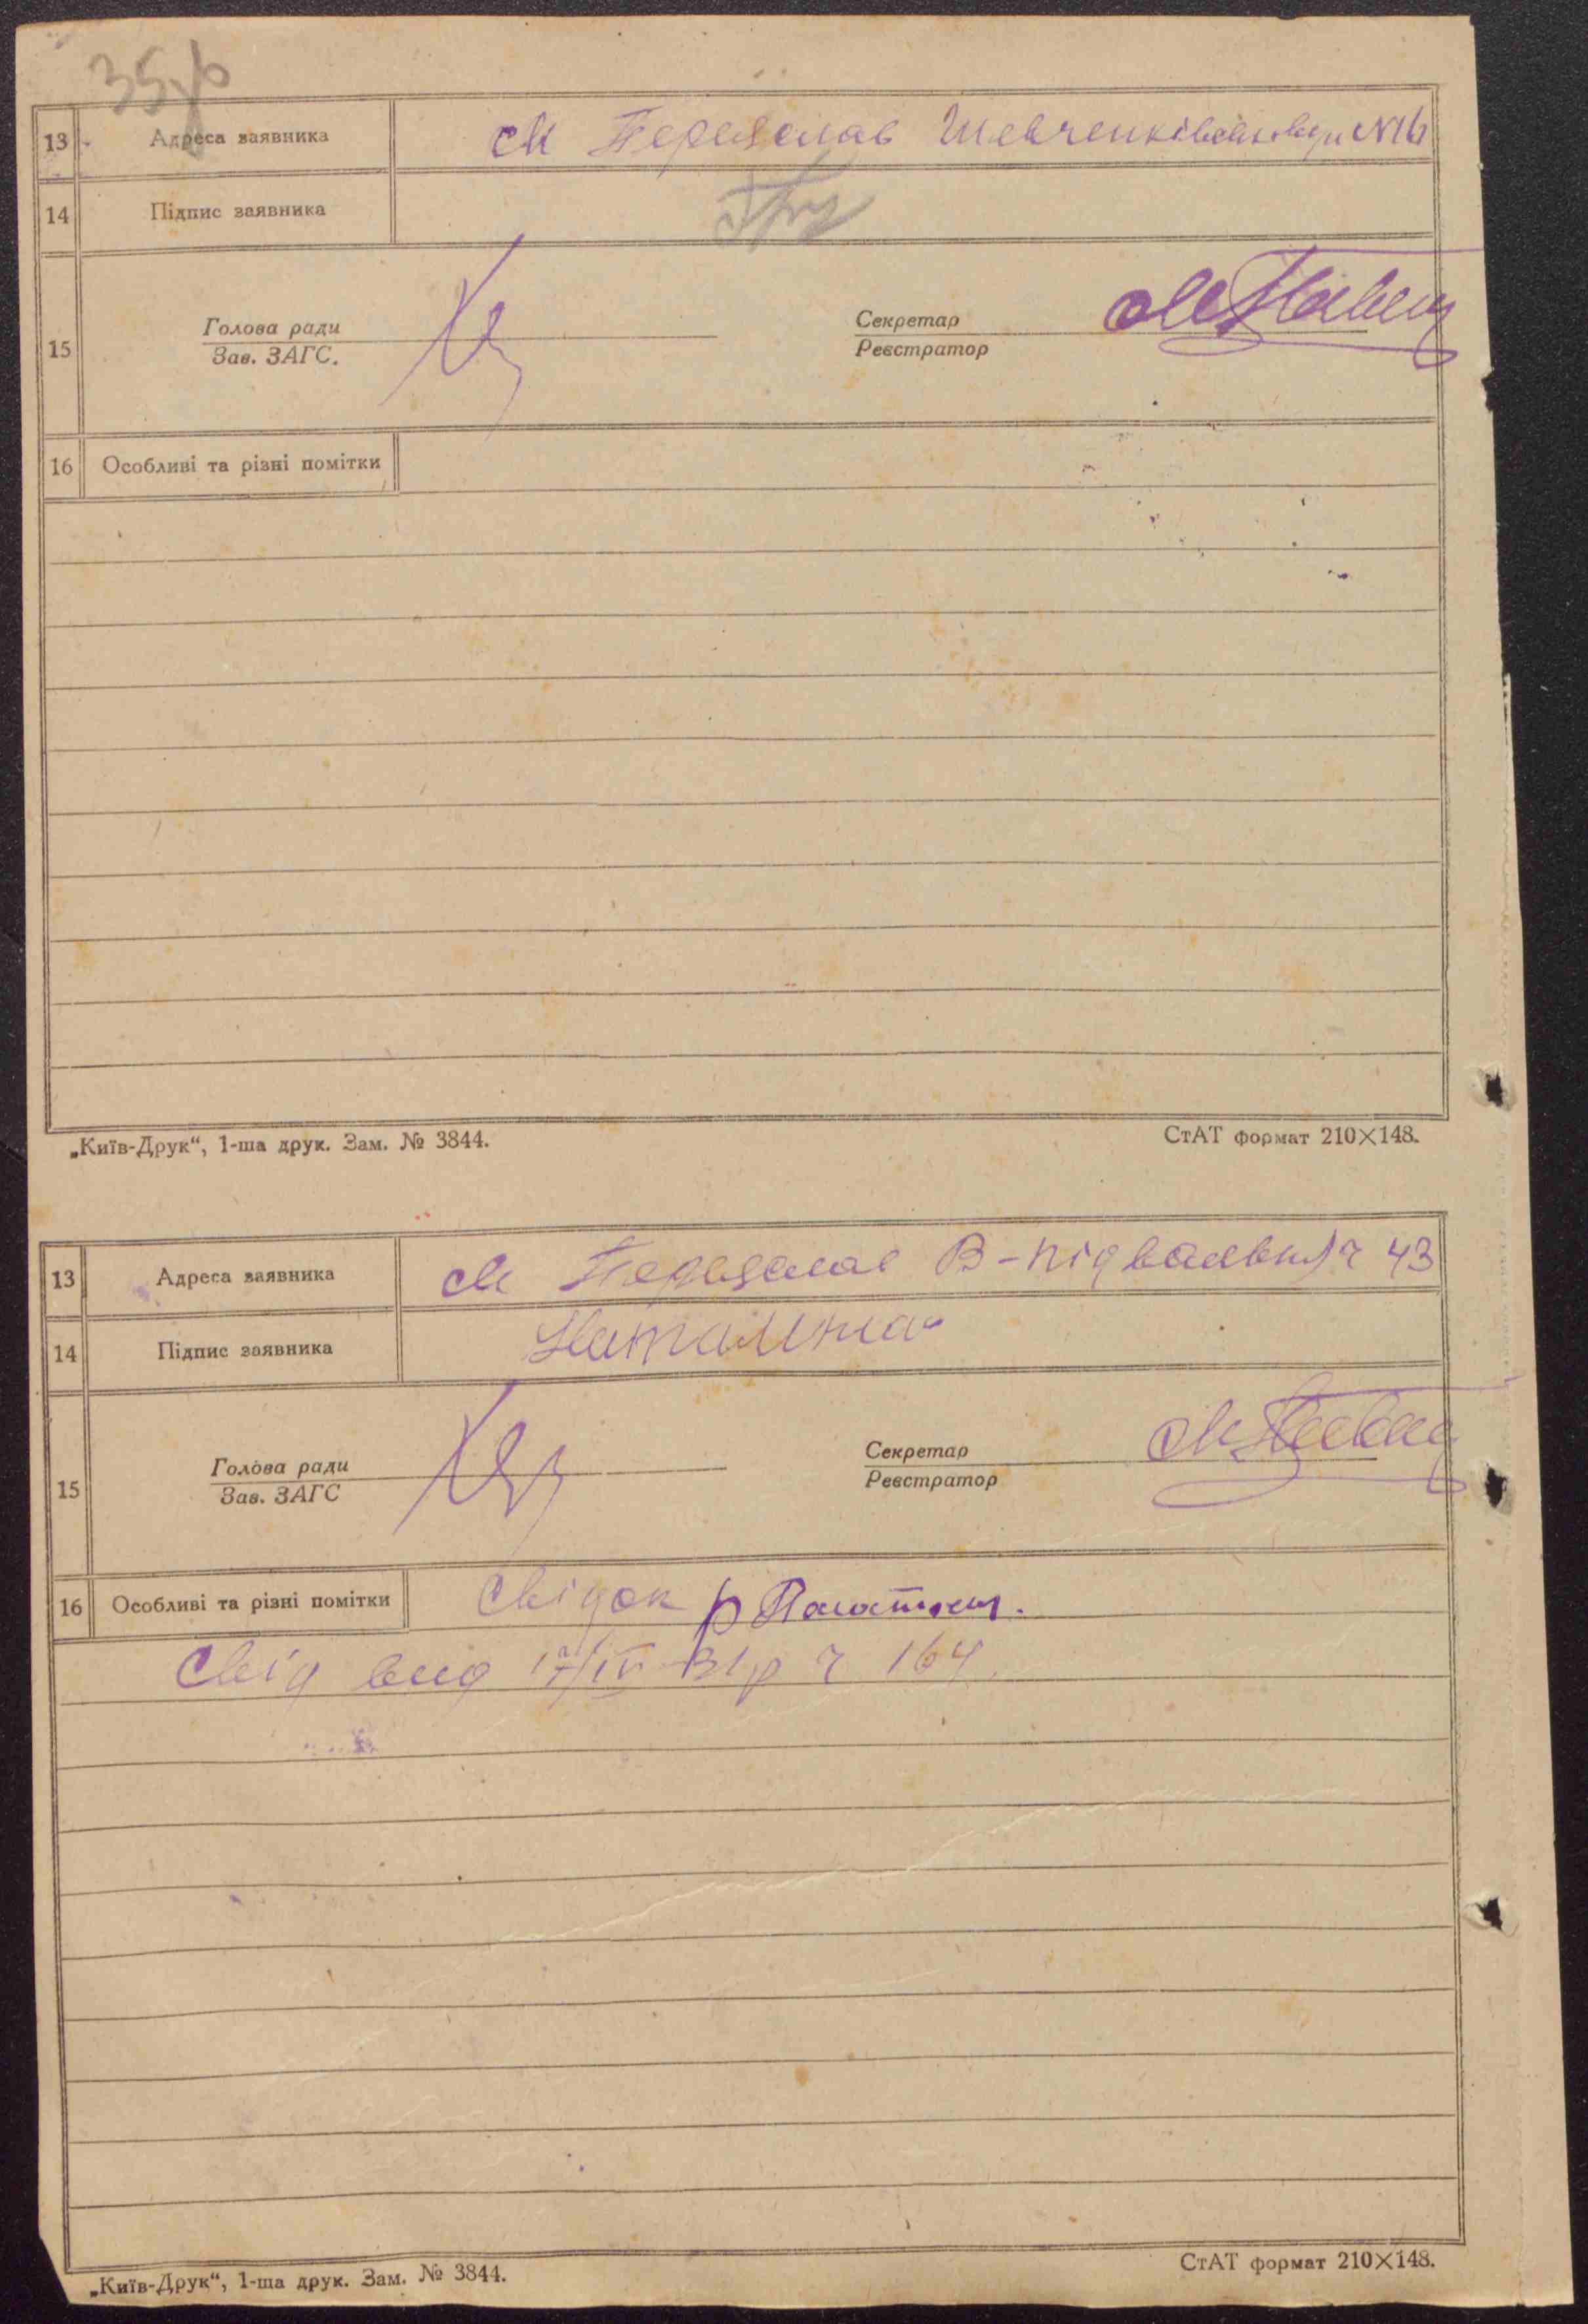 35
13 Адреса заявника м Переяслав Шевченківська вул №16
14 Підпис заявника
15 Голова ради Секретар
Зав. ЗАГС. Реєстратор
16 Особливі та різні помітки
„Київ-Друк“, 1-ша друк. Зам. № 3844. СтАТ формат 210×148.
13 Адреса заявника м Переяслав В-підвальна ч 43
14 Підпис заявника
15 Голова ради Секретар
Зав. ЗАГС Реєстратор
16 Особливі та різні помітки Свідок
Свід вид 17/IV-31р ч 164.
„Київ-Друк“, 1-ша друк. Зам. № 3844. СтАТ формат 210×148.